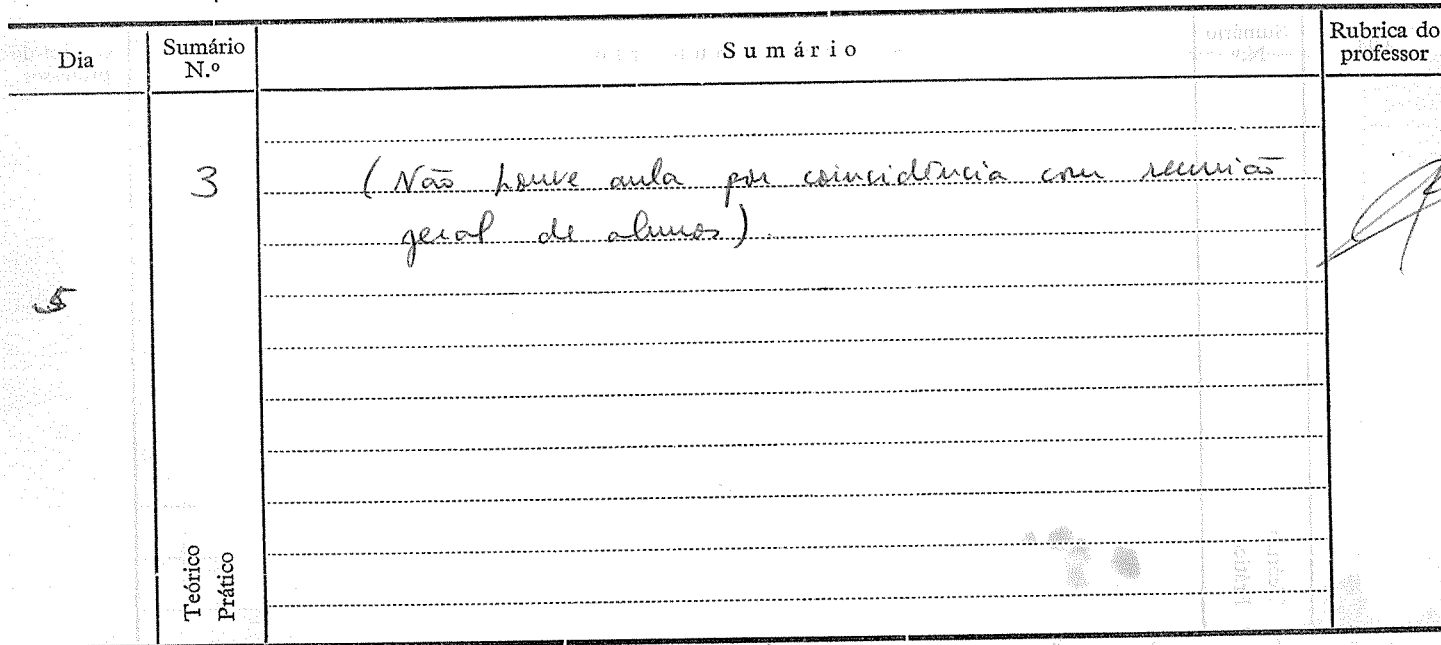 Dia Sumário N.º Sumário Rubrica do professor
3 (Não houve aula por coincidência com reunião
geral de alunos).
5
Teórico
Prático